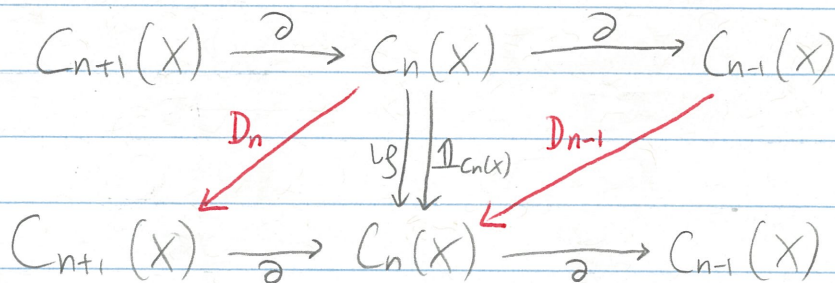 C_{n+1}(X) →^{∂} C_n(X) →^{∂} C_{n-1}(X)
D_n ιρ 𝟙_{C_n(X)} D_{n-1}
C_{n+1}(X) →_{∂} C_n(X) →_{∂} C_{n-1}(X)